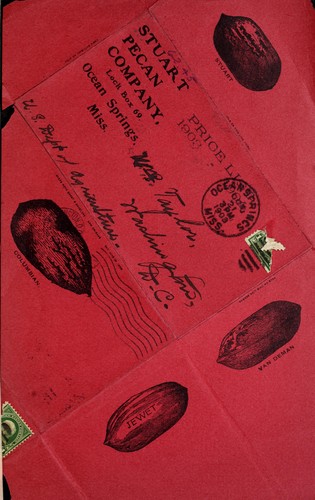 STUART
STUART
PECAN
COMPANY,
Lock Box 69
Ocean Springs,
Miss.
PRICE
1903
OCEAN SPRINGS
MISS.
1903
Taylor,
Washington,
D.C.
U. S. Dept of Agriculture.
COLUMBIAN.
VAN DEMAN
JEWETT